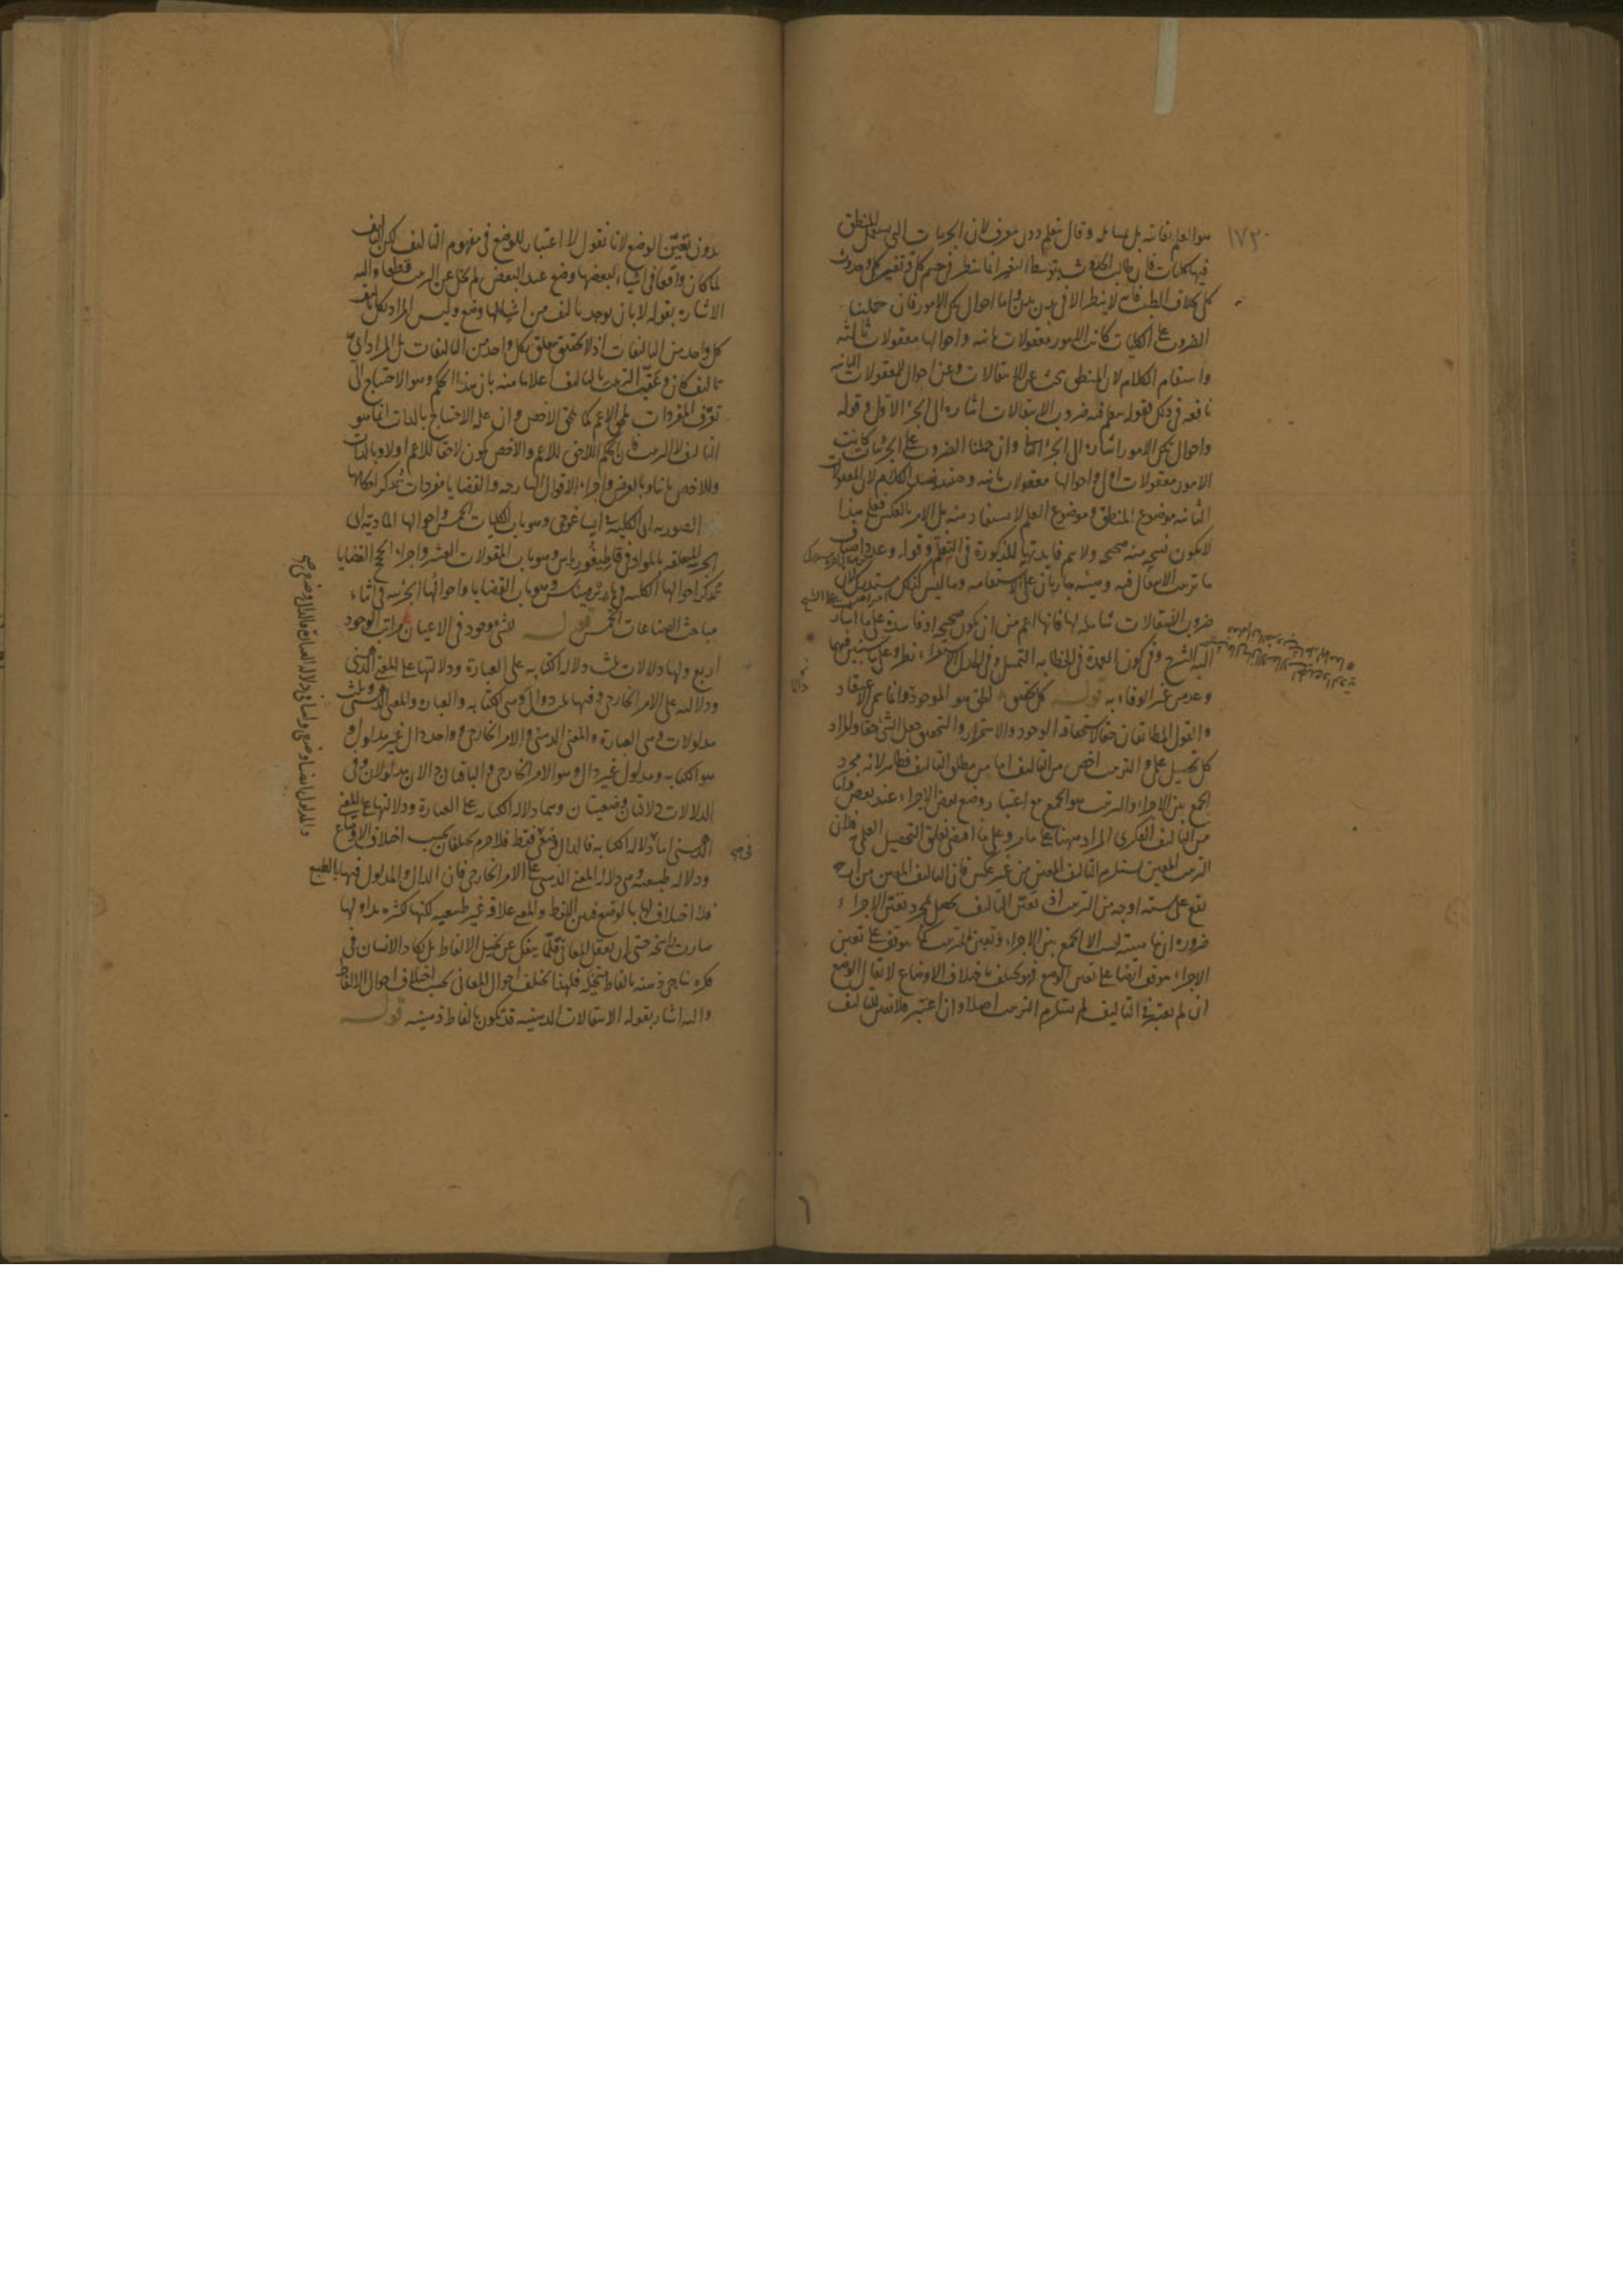 ١٧٣
هو العلم بذاته بل بمسائله وقال يتعلم دون يعرف لان الجزئيات التي يستعمل المنطق
فيها كليات فان طالب الحدوث بتوسط التغير انما ينظر في جسم كل وتغير كل وحدوث
كل بخلاف الطب فانه لا ينظر الا في بدن بدن واما احوال تلك الامور فان حملنا
الضروب على الكليات كانت الامور معقولات ثانية واحوالها معقولات ثالثة
واستقام الكلام لان المنطقي يبحث عن الانتقالات وعن احوال المعقولات الثانية
نافعة في ذلك فقوله يتعلم فيه ضروب الانتقالات اشارة الى الجزء الاول وقوله
واحوال تلك الامور اشارة الى الجزء الثاني وان حملنا الضروب على الجزئيات كانت
الامور معقولات اول واحوالها معقولات ثانية وحينئذ يفسد الكلام لان المعقولات
الثانية موضوع المنطق وموضوع العلم لا يستفاد منه بل الامر بالعكس فعلى هذا
لا يكون نسخة منه صحيحة ولا يتم فائدتها المذكورة في التعلم وقوله وعدد اصناف
ما ترتيب الانتقال فيه وهيئته جاريان على الاستقامة وما ليس كذلك مستدرك لان
ضروب الانتقالات شاملة لها فانها اعم من ان يكون صحيحة او فاسدة على ما اشار
اليه الشرح وفي كون العمدة في الخطابة التمثيل وفي الجدل الاستقراء نظر وعلى سنبين فيهما
وعد من غير الوفاء به قوله كل تحقيق الحق هو الموجود وانما سمي الاعتقاد
والقول المطابقان حقا لاستحقاقه الوجود والاستمرار والتحقيق جعل الشيء حقا والمراد
كل تحصيل علمي والترتيب اخص من التاليف اما من مطلق التاليف فظاهر لانه مجرد
الجمع بين الاجزاء والترتيب هو الجمع مع اعتبار وضع بعض الاجزاء عند بعض واما
من التاليف الفكري المراد ههنا على ما مر وعلى ما اقتضى تعلق التحصيل العلمي فلان
الترتيب المعين يستلزم التاليف المعين من غير عكس فان التاليف المعين من اب ج
يقع على ستة اوجه من الترتيب اذ تعين التاليف يحصل بمجرد تعين الاجزاء
ضرورة انها ليست الا الجمع بين الاجزاء وتعين الترتيب كما يتوقف على تعين
الاجزاء يتوقف ايضا على تعين الوضع فهو يختلف باختلاف الاوضاع لا يقال الوضع
ان لم يعتبر في التاليف لم يستلزم الترتيب اصلا وان اعتبر فلا تعين للتاليف
بدون تعين الوضع لانا نقول لا اعتبار للوضع في مفهوم التاليف لكن التاليف
لما كان واقعا في اشياء لبعضها وضع عند البعض لم يخل عن الترتيب قطعا واليه
الاشارة بقوله لا بان يوجد تاليف من اشياء لها وضع وليس المراد بكل تاليف
كل واحد من التاليفات اذ لا تحقيق متعلق بكل واحد من التاليفات بل المراد اي
تاليف كان وعقب الترتيب بالتاليف اعلاما منه بان هذا الحكم وهو الاحتياج الى
تعرف المفردات يلحق الاعم كما يلحق الاخص وان علة الاحتياج بالذات انما هو
التاليف لا الترتيب فان الحكم اللاحق للاعم والاخص يكون لاحقا للاعم اولا وبالذات
وللاخص ثانيا وبالعرض واجزاء الاقوال الشارحة والقضايا مفردات تذكر احكامها
الصورية اي الكلية في ايساغوجي وهو باب الكليات الخمس واحوالها المادية اي
الجزئية المتعلقة بالمواد في قاطيغورياس وهو باب المقولات العشر واجزاء الحجج القضايا
تذكر احوالها الكلية في باريرميناس وهو باب القضايا واحوالها الجزئية في اثناء
مباحث الصناعات الخمس قوله للشيء وجود في الاعيان مراتب الوجود
اربع ولها دلالات ثلث دلالة الكتابة على العبارة ودلالتها على المعنى الذهني
ودلالته على الامر الخارجي ففيها ثلث دوال وهي الكتابة والعبارة والمعنى الذهني وثلث
مدلولات وهي العبارة والمعنى الذهني والامر الخارجي وواحد دال غير مدلول و
هو الكتابة ومدلول غير دال وهو الامر الخارجي والباقيان دالان مدلولان وفي
الدلالات دلالتان وضعيتان وهما دلالة الكتابة على العبارة ودلالتها على المعنى
الذهني اما دلالة الكتابة فالدال وضعي فقط فلا جرم يختلفان بحسب اختلاف الاوضاع
ودلالة طبيعية وهي دلالة المعنى الذهني على الامر الخارجي فان الدال والمدلول فيها بالطبع
فلا اختلاف لها بالوضع فبين اللفظ والمعنى علاقة غير طبيعية لكنها لكثرة تداولها
صارت راسخة حتى ان تعقل المعاني قلما ينفك عن تخيل الالفاظ بل يكاد الانسان في
فكره يناجي ذهنه بالفاظ متخيلة فلهذا يختلف احوال المعاني بحسب اختلاف احوال الالفاظ
واليه اشار بقوله الانتقالات الذهنية قد تكون بالفاظ ذهنية قوله